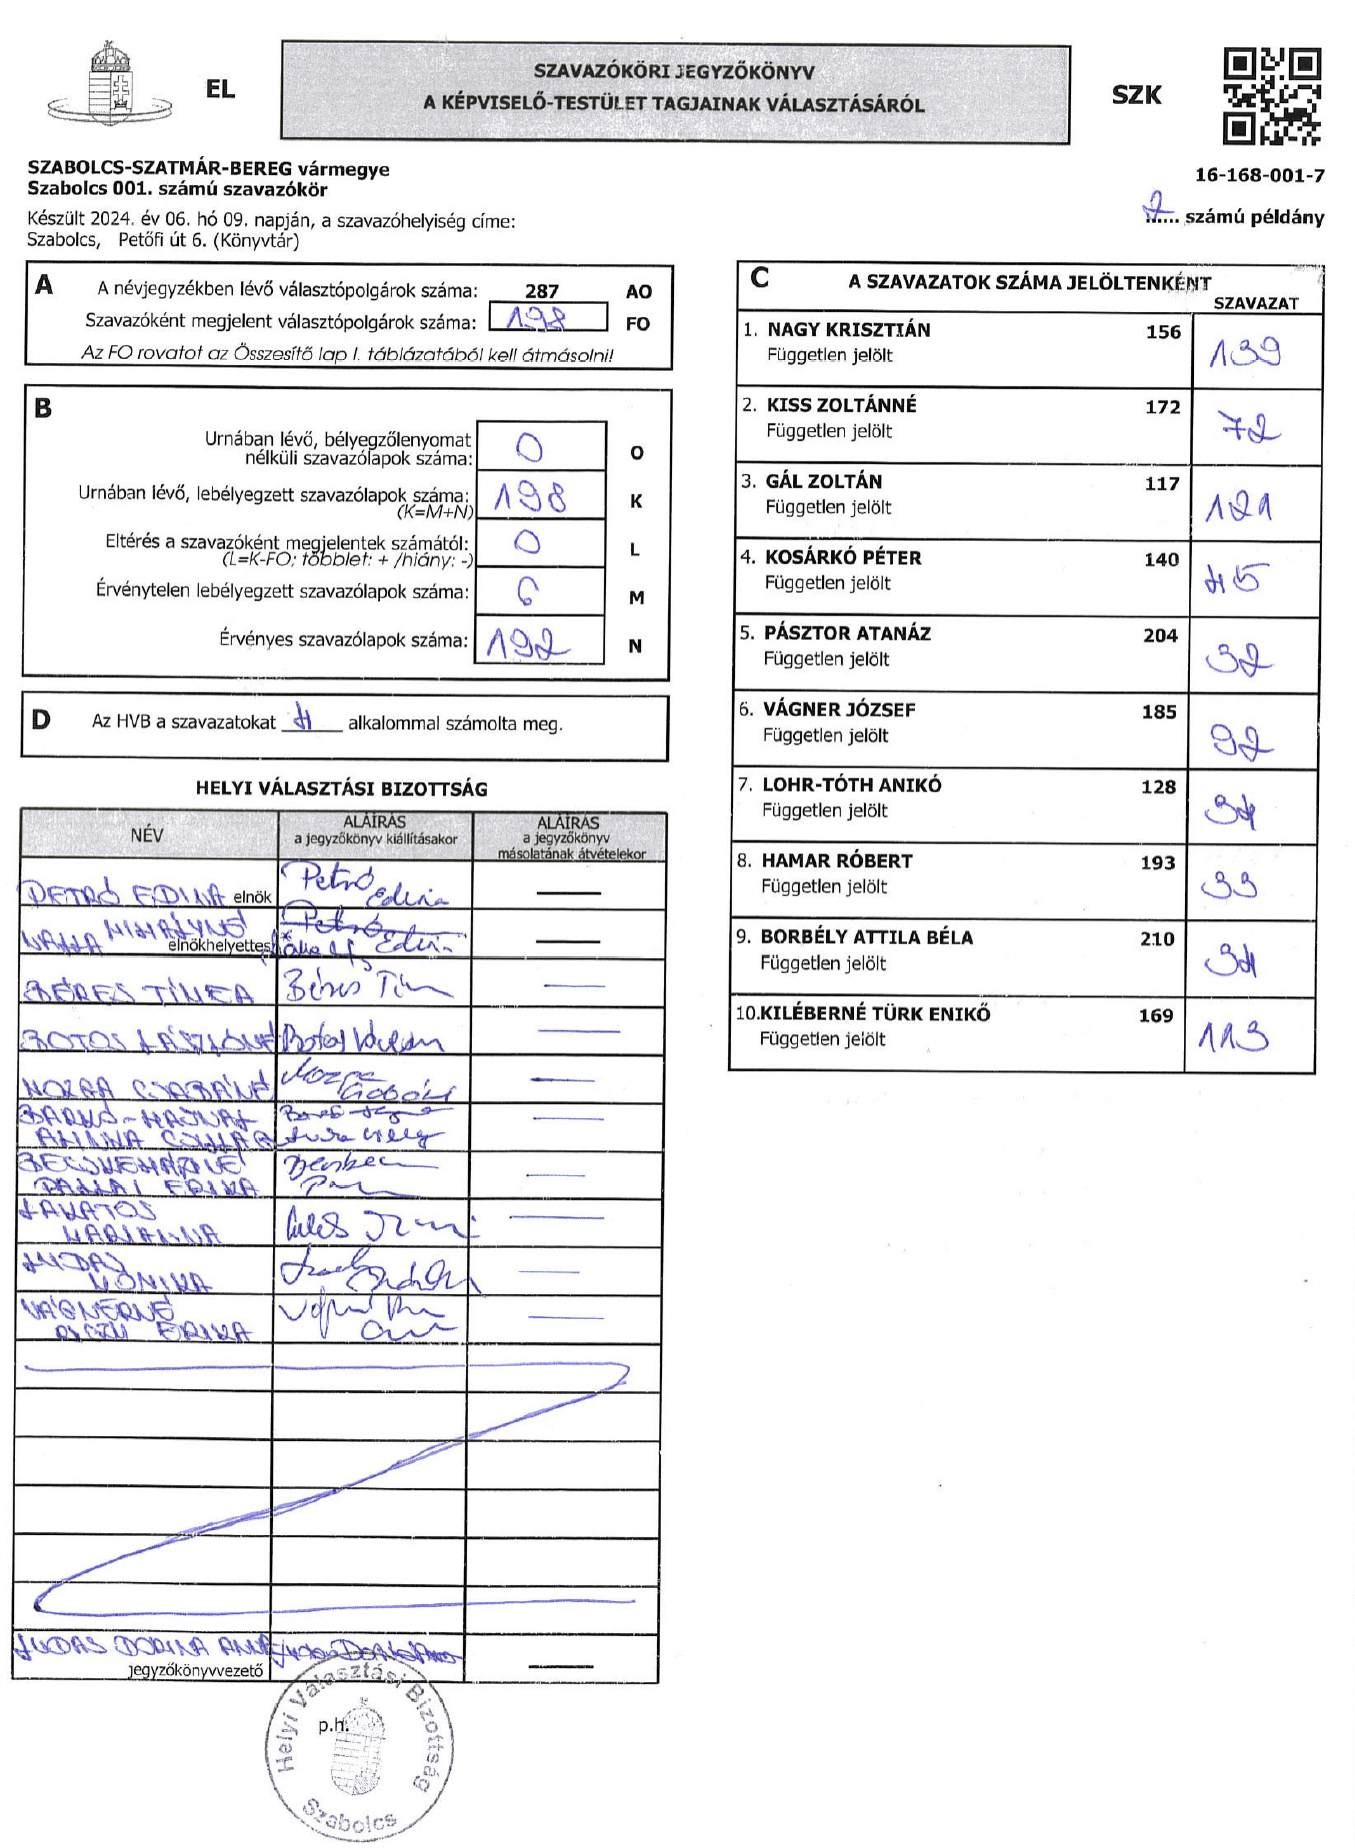 EL
SZAVAZÓKÖRI JEGYZŐKÖNYV
A KÉPVISELŐ-TESTÜLET TAGJAINAK VÁLASZTÁSÁRÓL
SZK
SZABOLCS-SZATMÁR-BEREG vármegye
Szabolcs 001. számú szavazókör
16-168-001-7
2 számú példány
Készült 2024. év 06. hó 09. napján, a szavazóhelyiség címe:
Szabolcs, Petőfi út 6. (Könyvtár)
A
A névjegyzékben lévő választópolgárok száma: 287 AO
Szavazóként megjelent választópolgárok száma: 198 FO
Az FO rovatot az Összesítő lap I. táblázatából kell átmásolni!
B
Urnában lévő, bélyegzőlenyomat
nélküli szavazólapok száma: 0 O
Urnában lévő, lebélyegzett szavazólapok száma: 198 K
(K=M+N)
Eltérés a szavazóként megjelentek számától: 0 L
(L=K-FO; többlet: + /hiány: -)
Érvénytelen lebélyegzett szavazólapok száma: 6 M
Érvényes szavazólapok száma: 192 N
D Az HVB a szavazatokat 4 alkalommal számolta meg.
C A SZAVAZATOK SZÁMA JELÖLTENKÉNT
SZAVAZAT
1. NAGY KRISZTIÁN 156 139
Független jelölt
2. KISS ZOLTÁNNÉ 172 72
Független jelölt
3. GÁL ZOLTÁN 117 121
Független jelölt
4. KOSÁRKÓ PÉTER 140 45
Független jelölt
5. PÁSZTOR ATANÁZ 204 32
Független jelölt
6. VÁGNER JÓZSEF 185 92
Független jelölt
7. LOHR-TÓTH ANIKÓ 128 34
Független jelölt
8. HAMAR RÓBERT 193 33
Független jelölt
9. BORBÉLY ATTILA BÉLA 210 34
Független jelölt
10.KILÉBERNÉ TÜRK ENIKŐ 169 113
Független jelölt
HELYI VÁLASZTÁSI BIZOTTSÁG
NÉV
ALÁÍRÁS
a jegyzőkönyv kiállításakor
ALÁÍRÁS
a jegyzőkönyv
másolatának átvételekor
PETRÓ EDINA elnök Petró Edina
MIHÁLYNÉ
elnökhelyettes Petró Edin
BÉRES TÍMEA Béres Tím
BOTOS LÁSZLÓNÉ Botos
MOZGA CSABÁNÉ Mozga
BARKÓ-HAJNAL
ANNA CSILLA
BECSKEHÁZINÉ
PALLAI ERIKA
LAKATOS
MARIANNA
JUDAS
MÓNIKA
VÁGNERNÉ
ERIKA
JUDAS DORINA ANNA
jegyzőkönyvvezető
p.h.
Helyi Választási Bizottság
Szabolcs